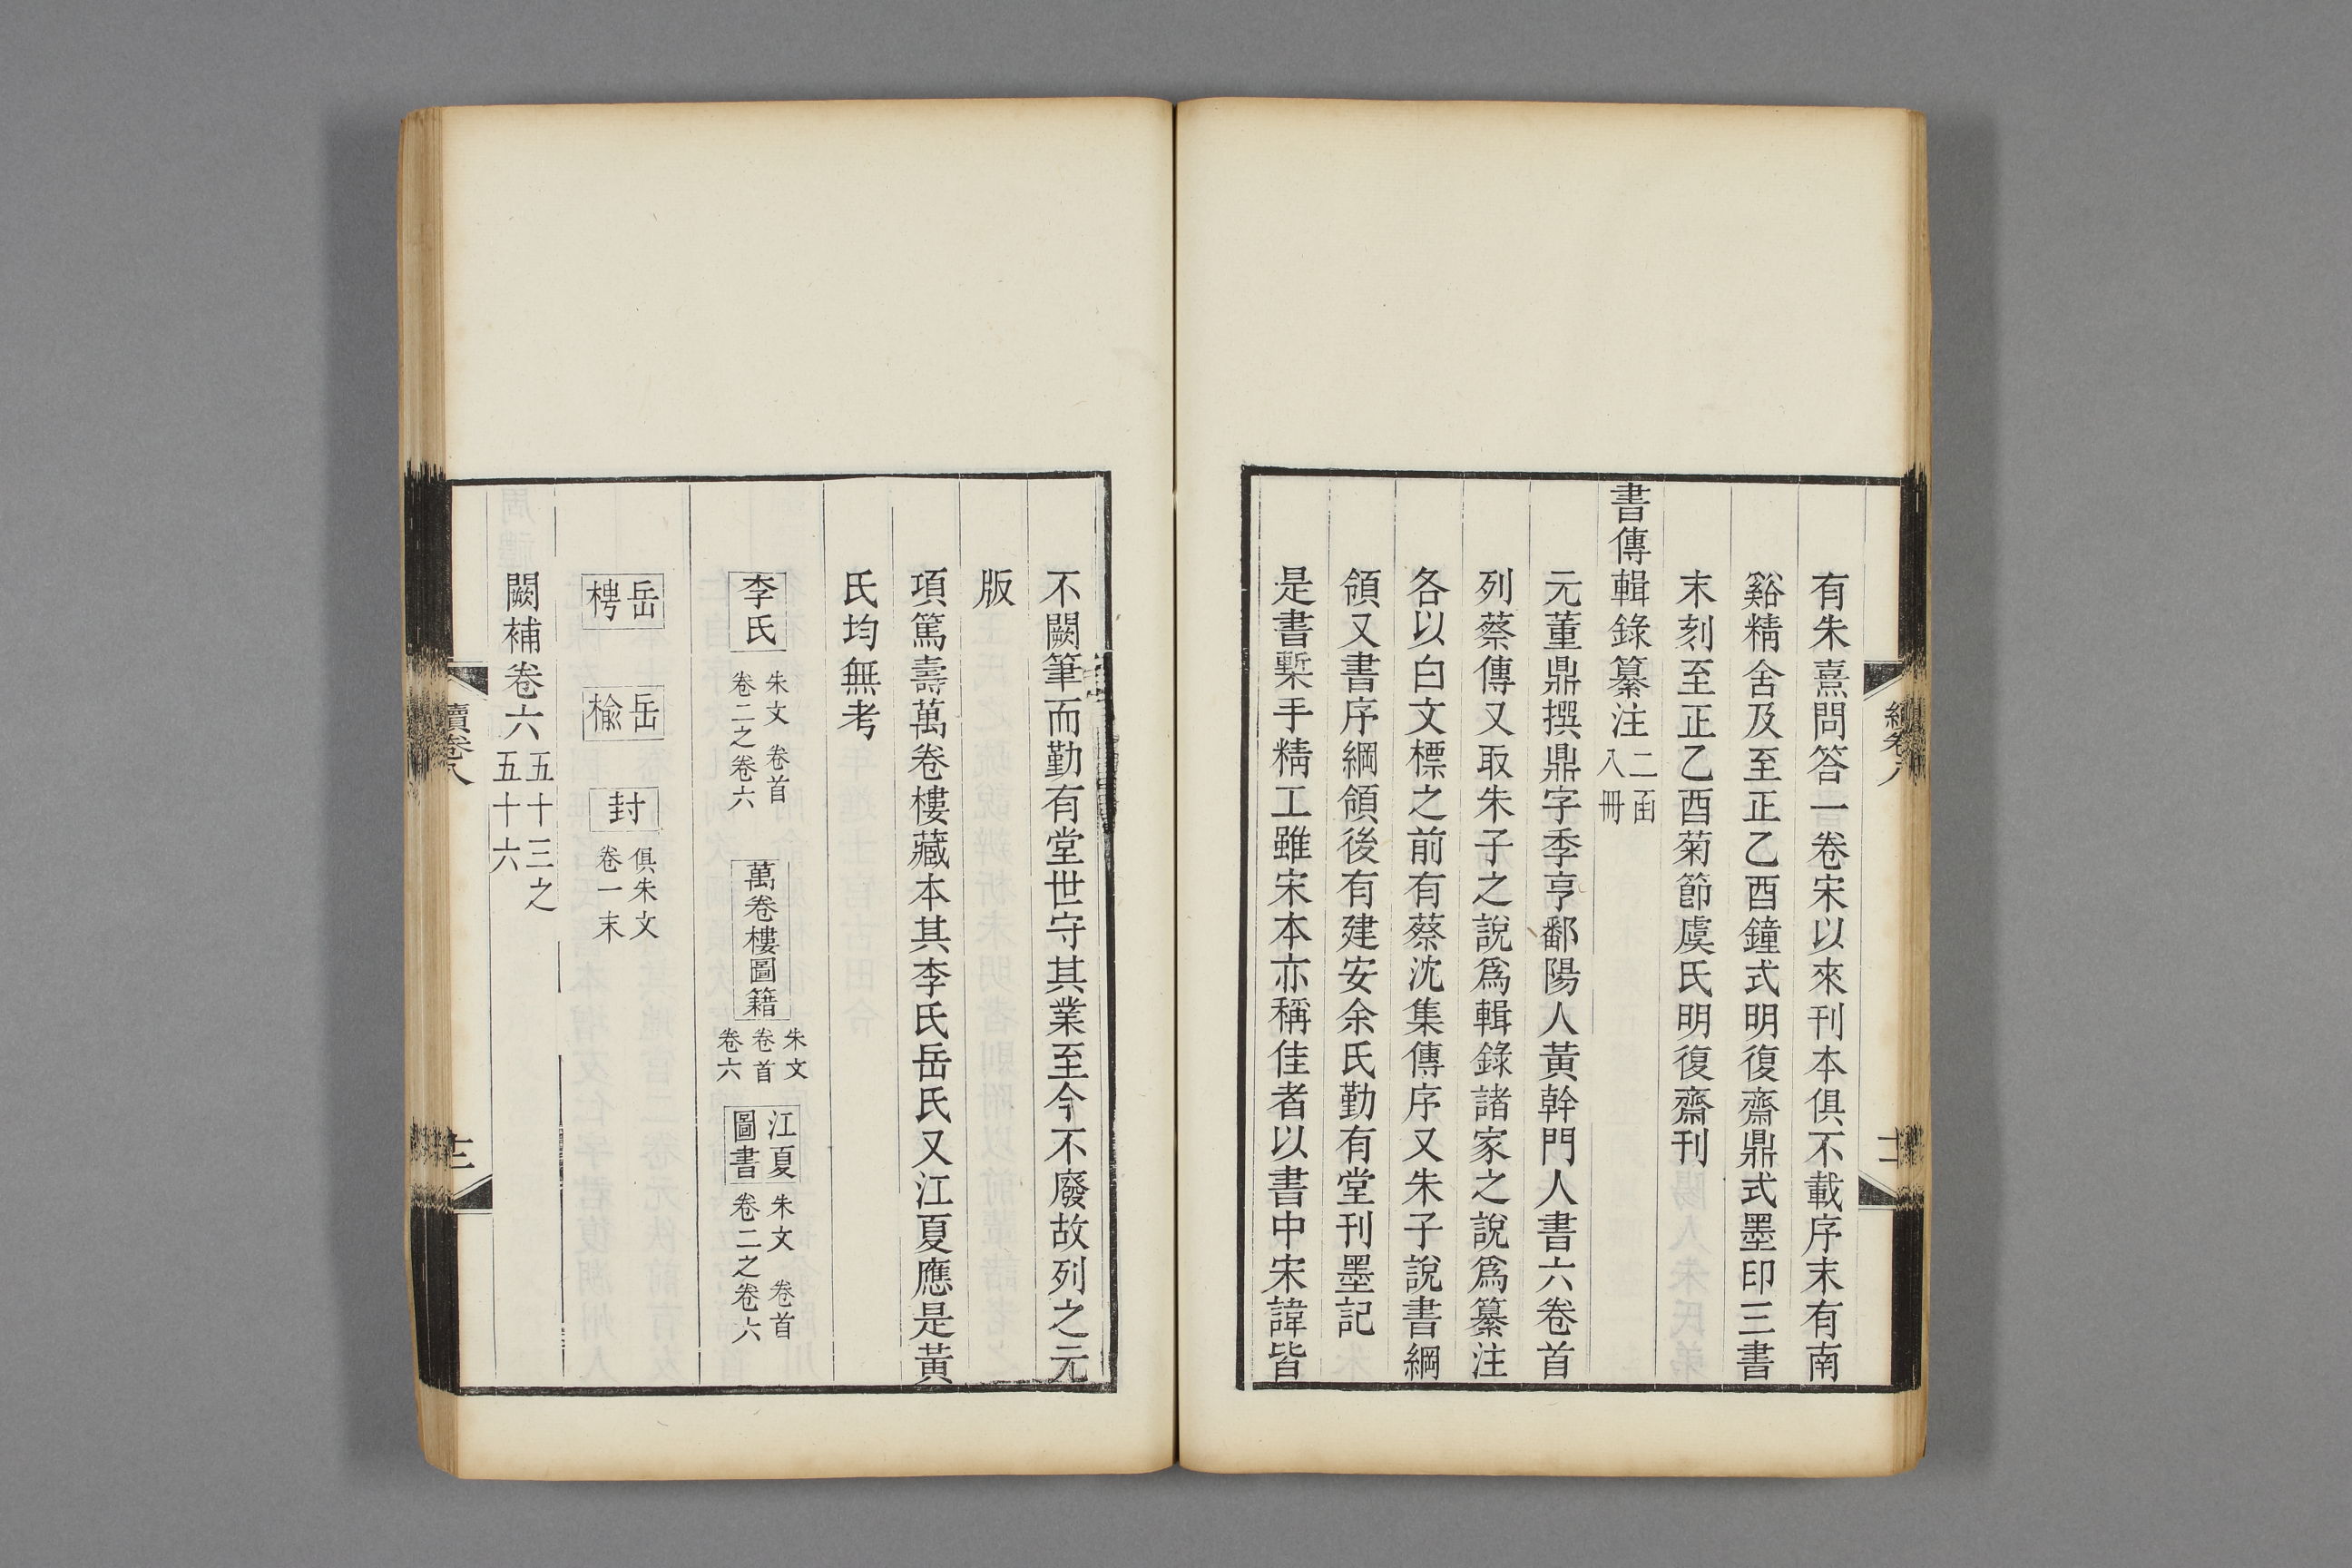 有朱熹問答一卷宋以來刊本俱不載序末有南
谿精舍及至正乙酉鐘式明復齋鼎式墨印三書
末刻至正乙酉菊節虞氏明復齋刊
書傳輯錄纂注二函八冊
元董鼎撰鼎字季亨鄱陽人黃幹門人書六卷首
列蔡傳又取朱子之說爲輯錄諸家之說爲纂注
各以白文標之前有蔡沈集傳序又朱子說書綱
領又書序綱領後有建安余氏勤有堂刊墨記
是書槧手精工雖宋本亦稱佳者以書中宋諱皆
不闕筆而勤有堂世守其業至今不廢故列之元
版
項篤壽萬卷樓藏本其李氏岳氏又江夏應是黃
氏均無考
李氏 朱文 卷首 卷二之卷六 萬卷樓圖籍 朱文 卷首 卷六 江夏圖書 朱文 卷首 卷二之卷六
岳梬 岳楡 封 俱朱文 卷一末
闕補卷六五十三之五十六
續卷八